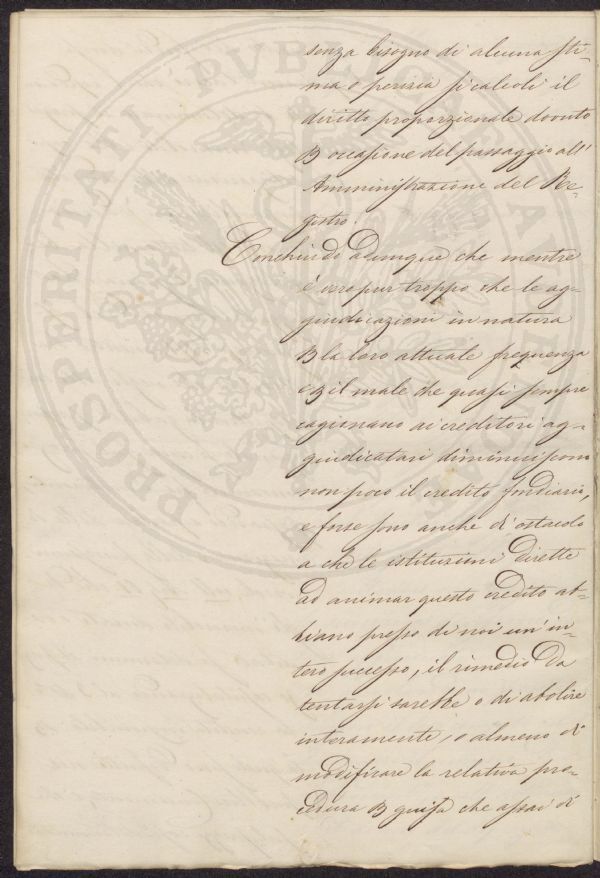 senza bisogno di alcuna sti-
ma o perizia si calcoli il
diritto proporzionale dovuto
in occasione del passaggio all'
Amministrazione del Re-
gistro.
Conchiudo adunque che mentre
è vero pur troppo che le ag-
giudicazioni in natura
per la loro attuale frequenza
e per il male che quasi sempre
cagionano ai creditori ag-
giudicatari diminuiscono
non poco il credito fondiario,
e forse sono anche di ostacolo
a che le istituzioni dirette
ad animar questo credito ab-
biano presso di noi un in-
tero successo, il rimedio da
tentarsi sarebbe o di abolire
interamente, o almeno di
modificare la relativa pro-
cedura in guisa che assai di
PROSPERITATI PVBLICAE AVGE